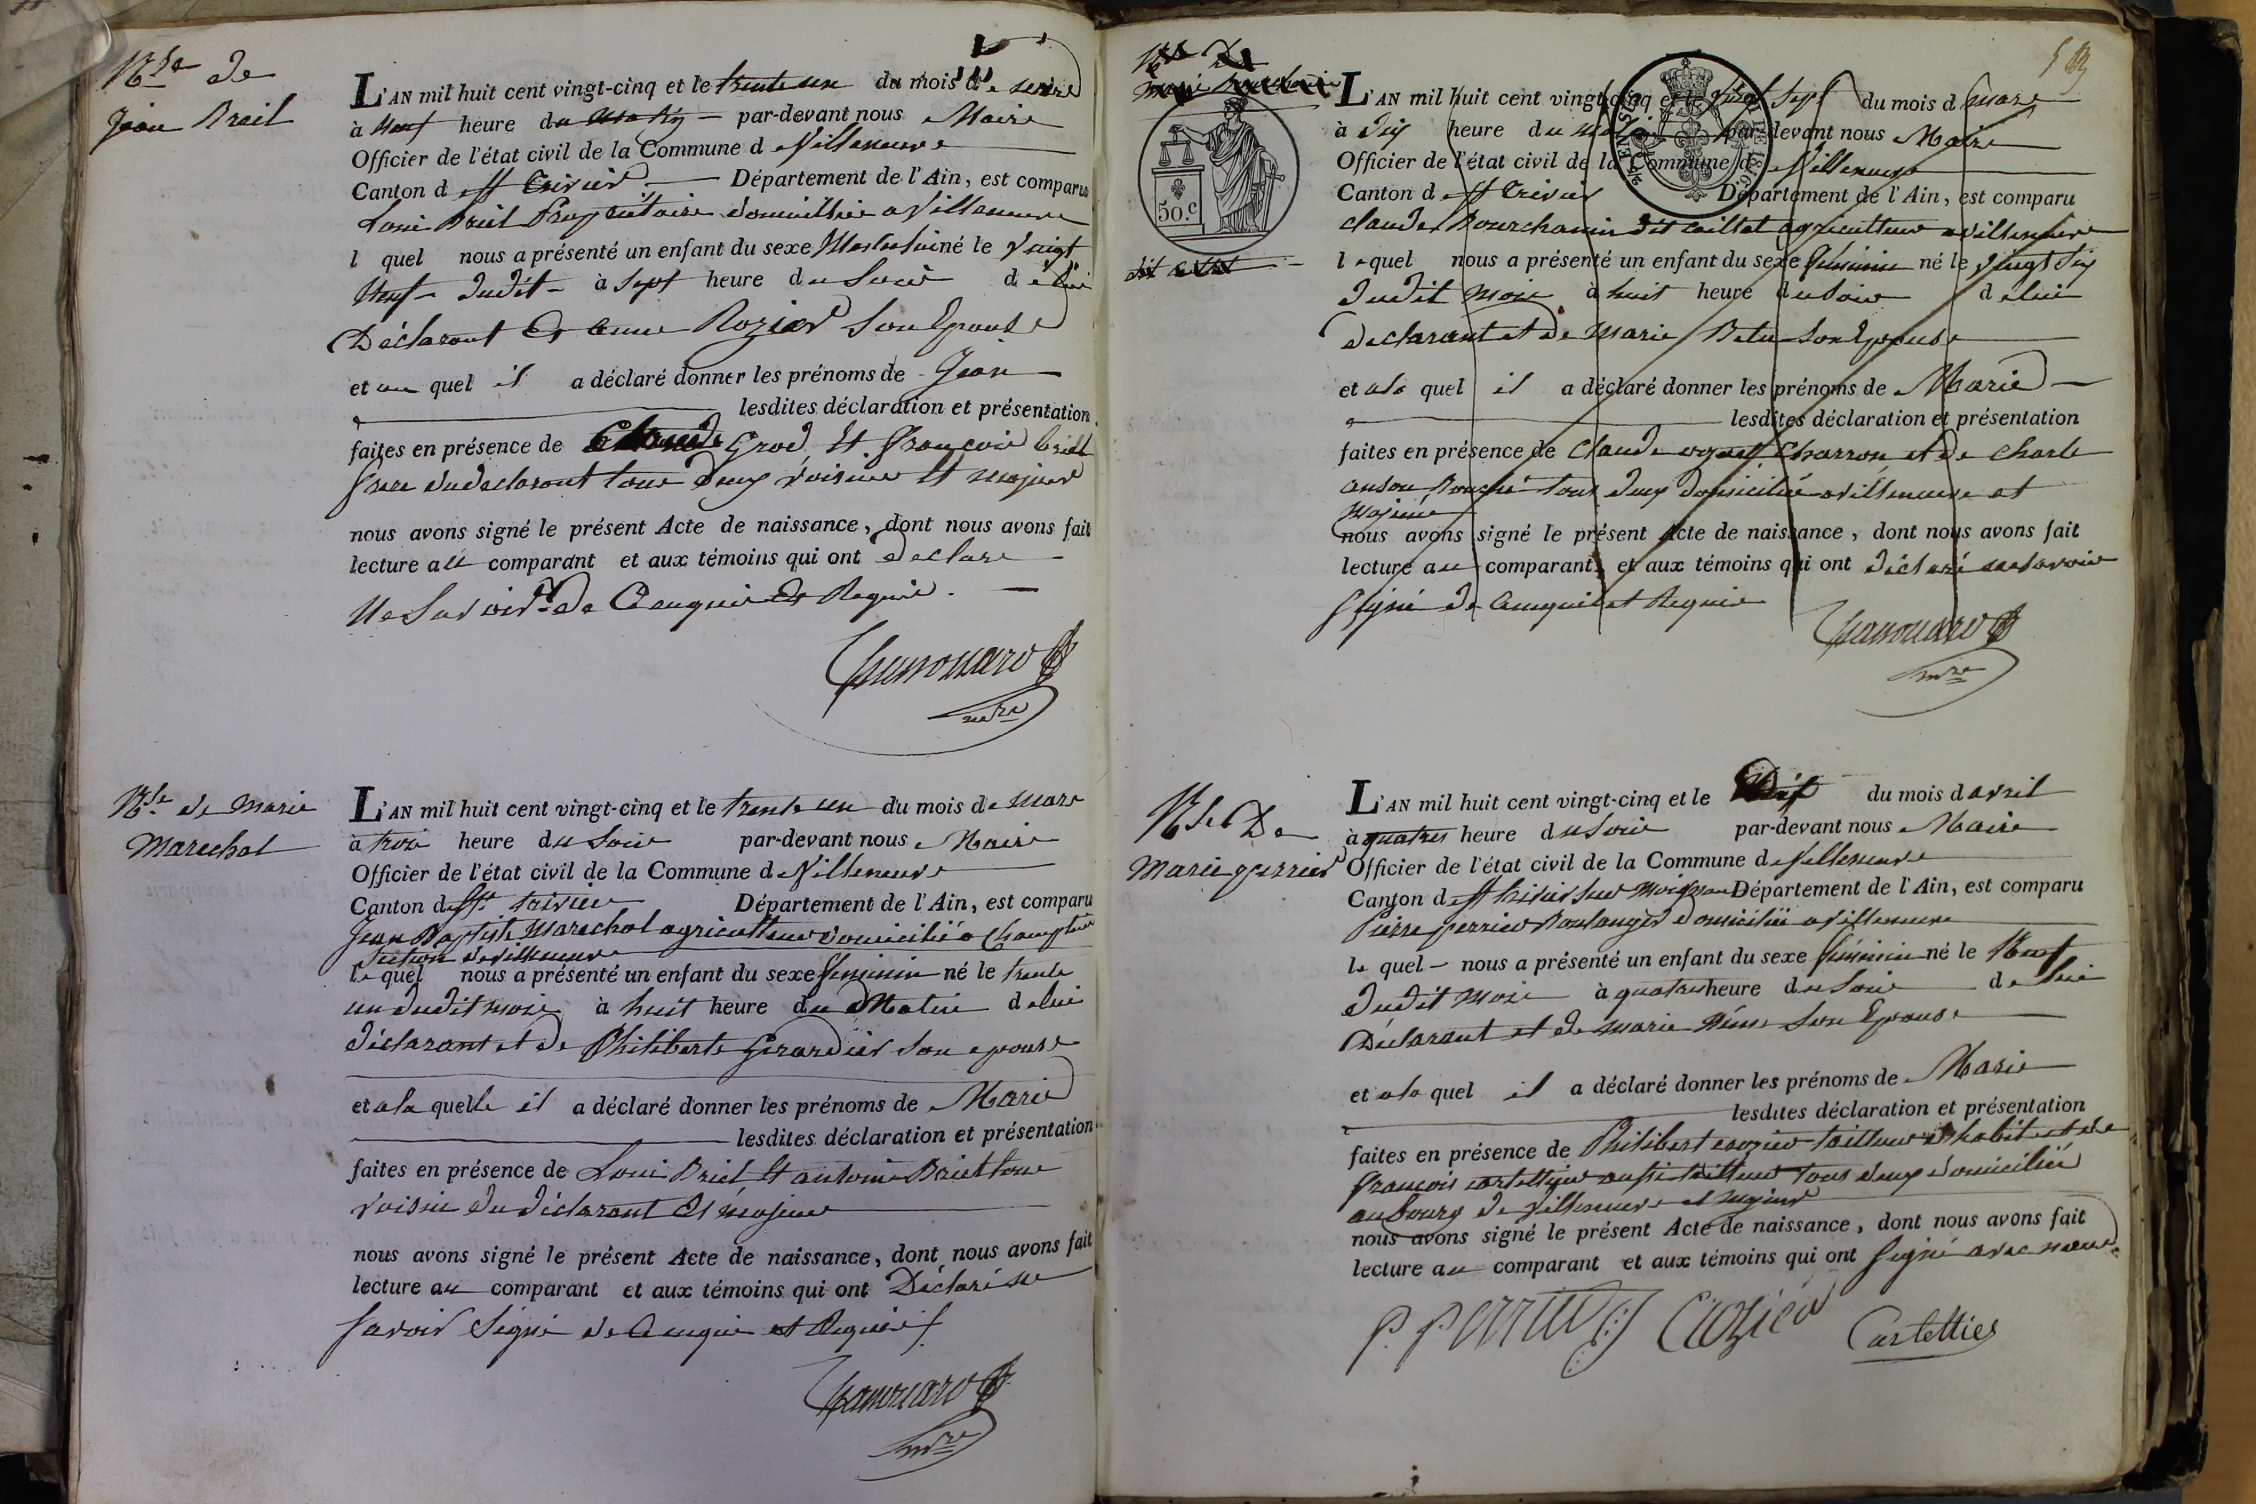 Nce de
Jean Breil
L'AN mil huit cent vingt-cinq et le trente un du mois de
à neuf heure du matin par-devant nous Maire
Officier de l'état civil de la Commune d Villeneuve
Canton d St trivier Département de l'Ain, est comparu
Loui Briel Propriétaire domicillié a Villeneuve
l quel nous a présenté un enfant du sexe Masculin né le vingt
neuf dudit à sept heure du Soir de lui
Déclarant Et anne Rozier Son Epouse
et au quel il a déclaré donner les prénoms de Jean
lesdites déclaration et présentation
faites en présence de Claude Grod Et françois briel
frere dudeclarant tous deux voisins Et majeur
nous avons signé le présent Acte de naissance, dont nous avons fait
lecture au comparant et aux témoins qui ont declare
Ne Savoir de Ce enquis Et Requis.
mre
Nce de Marie
Marechal
L'AN mil huit cent vingt-cinq et le trente un du mois de Mars
à troi heure du Soir par-devant nous Maire
Officier de l'état civil de la Commune de Villeneuve
Canton de St trivier Département de l'Ain, est comparu
Jean Baptiste Marechal agriculteur domicilié a
Section de villeneuve
le quel nous a présenté un enfant du sexe feminin né le trente
un dudit mois à huit heure du Matin de lui
déclarant et de Philiberte Girardier Son epouse
et a la quelle il a déclaré donner les prénoms de Marie
lesdites déclaration et présentation
faites en présence de Loui Briel Et antoine Briel tous
voisin du déclarant Et majeur
nous avons signé le présent Acte de naissance, dont nous avons fait
lecture au comparant et aux témoins qui ont Déclaré ne
Savoir Signé de Ce enquis et Requis
mre
50.c
L'AN mil huit cent vingt-cinq et le vingt Sept du mois d mars
à dix heure du matin par-devant nous Maire
Officier de l'état civil de la Commune de Villeneuve
Canton d St trivier Département de l'Ain, est comparu
claude Bourchanin dit caillat agriculteur a villeneuve
l equel nous a présenté un enfant du sexe féminin né le vingt Six
dudit mois à huit heure du Soir de lui
declarant et de Marie Betu Son Epouse
et a la quel il a déclaré donner les prénoms de Marie
lesdites déclaration et présentation
faites en présence de Claude Charron et de Charle
tous deux domicilié a villeneuve et
Majeur
nous avons signé le présent Acte de naissance, dont nous avons fait
lecture au comparant, et aux témoins qui ont déclaré ne Savoir
Signé de Ce enquis et Requis
mre
Nce De
Marie perrier
L'AN mil huit cent vingt-cinq et le Dix du mois d avril
à quatres heure du Soir par-devant nous Maire
Officier de l'état civil de la Commune de Villeneuve
Canton d St trivier Sur Moignans Département de l'Ain, est comparu
Pierre perrier Boulanger domicilié a villeneuve
le quel nous a présenté un enfant du sexe féminin né le Neuf
dudit Mois à quatres heure du Soir de lui
Déclarant et de Marie Son Epouse
et a la quel il a déclaré donner les prénoms de Marie
lesdites déclaration et présentation
faites en présence de Philibert crozier tailleur d habit et de
françois cartellier aussi tailleur tous deux domicilié
au bourg de Villeneuve et majeur
nous avons signé le présent Acte de naissance, dont nous avons fait
lecture au comparant et aux témoins qui ont Signé avec nous
P. Perrier Crozier Cartellier